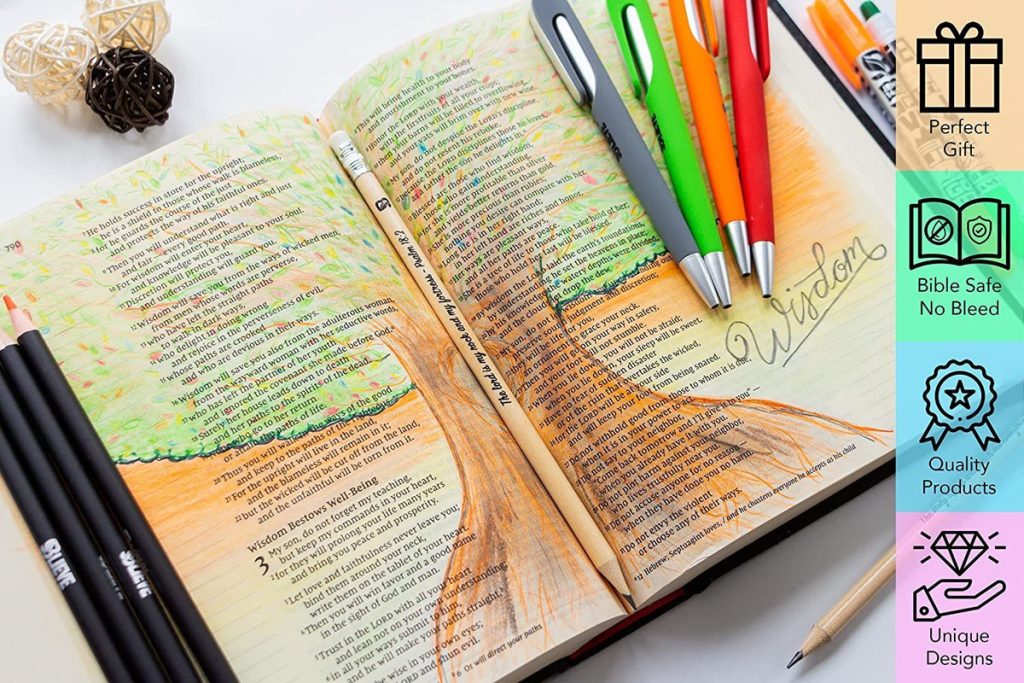 790
⁷He holds success in store for the upright,
he is a shield to those whose walk is blameless,
⁸for he guards the course of the just
and protects the way of his faithful ones.
⁹Then you will understand what is right and just
and fair—every good path.
¹⁰For wisdom will enter your heart,
and knowledge will be pleasant to your soul.
¹¹Discretion will protect you,
and understanding will guard you.
¹²Wisdom will save you from the ways of wicked men,
from men whose words are perverse,
¹³who have left the straight paths
to walk in dark ways,
¹⁴who delight in doing wrong
and rejoice in the perverseness of evil,
¹⁵whose paths are crooked
and who are devious in their ways.
¹⁶Wisdom will save you also from the adulterous woman,
from the wayward woman with her seductive words,
¹⁷who has left the partner of her youth
and ignored the covenant she made before God.
¹⁸Surely her house leads down to death
and her paths to the spirits of the dead.
¹⁹None who go to her return
or attain the paths of life.
²⁰Thus you will walk in the ways of the good
and keep to the paths of the righteous.
²¹For the upright will live in the land,
and the blameless will remain in it;
²²but the wicked will be cut off from the land,
and the unfaithful will be torn from it.
Wisdom Bestows Well-Being
3 My son, do not forget my teaching,
but keep my commands in your heart,
²for they will prolong your life many years
and bring you peace and prosperity.
³Let love and faithfulness never leave you;
bind them around your neck,
write them on the tablet of your heart.
⁴Then you will win favor and a good name
in the sight of God and man.
⁵Trust in the LORD with all your heart
and lean not on your own understanding;
⁶in all your ways submit to him,
and he will make your paths straight.
⁷Do not be wise in your own eyes;
fear the LORD and shun evil.
6 Or will direct your paths
⁸This will bring health to your body
and nourishment to your bones.
⁹Honor the LORD with your wealth,
with the firstfruits of all your crops;
¹⁰then your barns will be filled to overflowing,
and your vats will brim over with new wine.
¹¹My son, do not despise the LORD's discipline,
and do not resent his rebuke,
¹²because the LORD disciplines those he loves,
as a father the son he delights in.
¹³Blessed are those who find wisdom,
those who gain understanding,
¹⁴for she is more profitable than silver
and yields better returns than gold.
¹⁵She is more precious than rubies;
nothing you desire can compare with her.
¹⁶Long life is in her right hand;
in her left hand are riches and honor.
¹⁷Her ways are pleasant ways,
and all her paths are peace.
¹⁸She is a tree of life to those who take hold of her;
those who hold her fast will be blessed.
the earth's foundations,
he set the heavens in place;
by his knowledge
and the clouds
the dew.
judgment and discretion;
grace your neck.
go on your way in safety,
you will not be afraid;
your sleep will be sweet.
have no fear of sudden disaster
the wicked,
for the LORD will be at your side
and will keep your foot from being snared.
withhold good from those to whom it is due,
when it is in your power to act.
Do not say to your neighbor,
"Come back tomorrow and I'll give it to you"—
when you already have it with you.
Do not plot harm against your neighbor,
who lives trustfully near you.
Do not accuse anyone for no reason—
when they have done you no harm.
Do not envy the violent
or choose any of their ways.
12 Hebrew; Septuagint loves, / and he chastens everyone he accepts as his child
Wisdom
The lord is my rock and my fortress. Psalm 18:2
BLIEVE
BLIEVE
Perfect
Gift
Bible Safe
No Bleed
Quality
Products
Unique
Designs